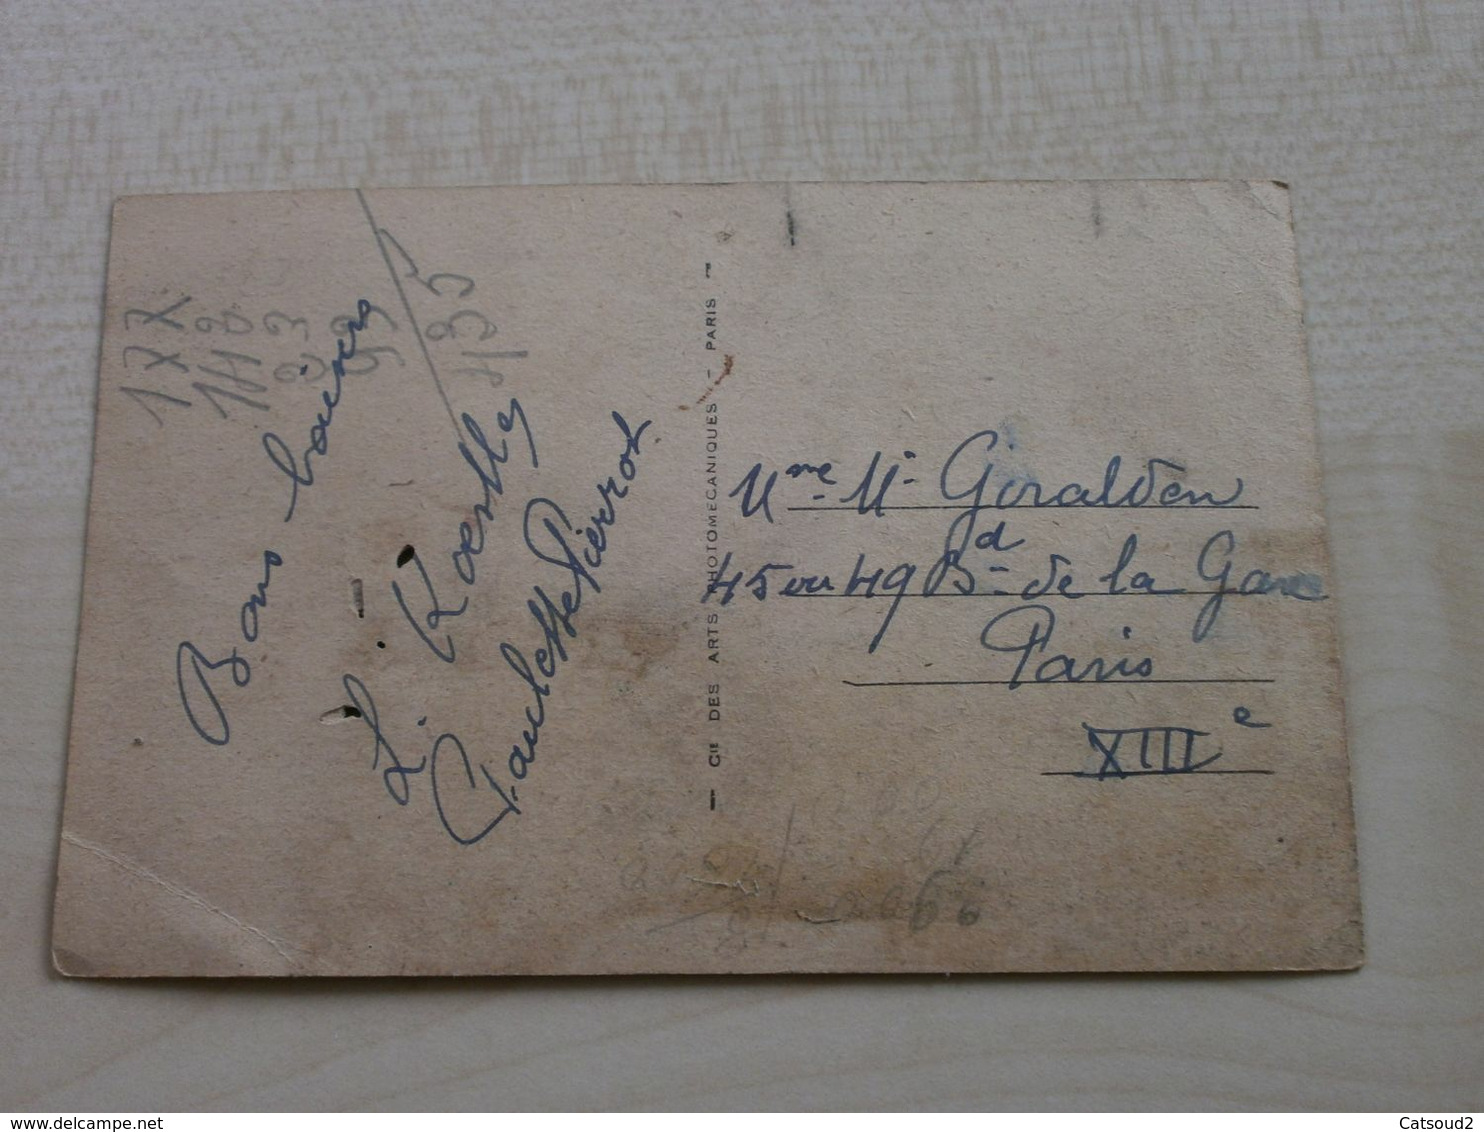 177
142
23
93
435
Bons baisers
L. Koestly
Paulette Pierrot
— CIE DES ARTS PHOTOMECANIQUES - PARIS —
Mme M. Goralden
45 ou 49 Bd de la Gare
Paris
XIIIe
delcampe.net
Catsoud2